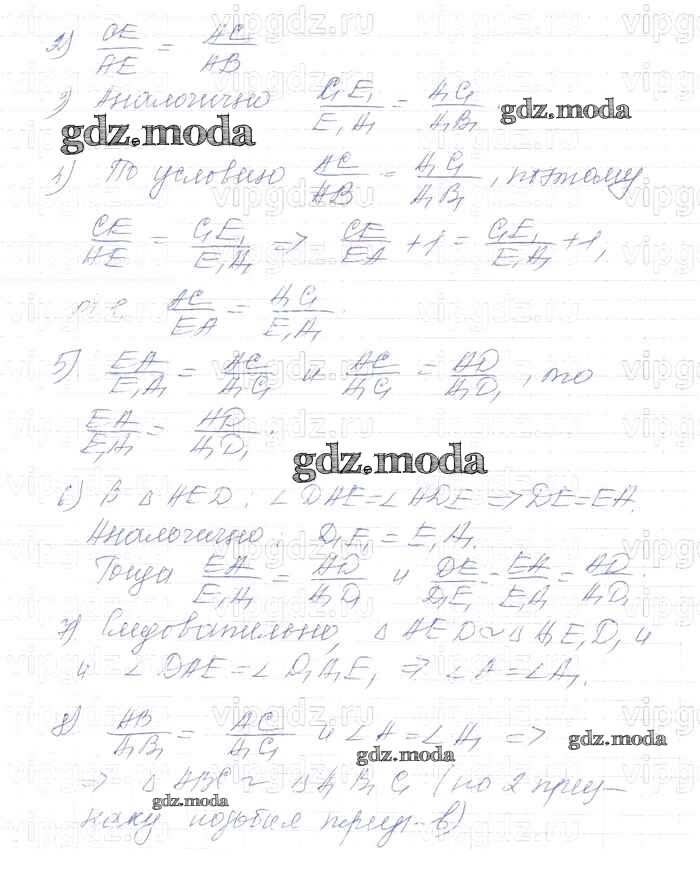 2) CE/AE = AC/AB
3) Аналогично C₁E₁/E₁A₁ = A₁C₁/A₁B₁
gdz.moda
gdz.moda
4) По условию AC/AB = A₁C₁/A₁B₁, поэтому
CE/AE = C₁E₁/E₁A₁ => CE/EA + 1 = C₁E₁/E₁A₁ + 1,
т.е. AC/EA = A₁C₁/E₁A₁.
5) EA/E₁A₁ = AC/A₁C₁ и AC/A₁C₁ = AD/A₁D₁, то
EA/E₁A₁ = AD/A₁D₁.
gdz.moda
6) В △AED: ∠DAE = ∠ADE => DE = EA.
Аналогично, D₁E₁ = E₁A₁.
Тогда EA/E₁A₁ = AD/A₁D₁ и DE/D₁E₁ = EA/E₁A₁ = AD/A₁D₁.
7) Следовательно, △AED ~ △A₁E₁D₁ и
и ∠DAE = ∠D₁A₁E₁ => ∠A = ∠A₁.
8) AB/A₁B₁ = AC/A₁C₁ и ∠A = ∠A₁ =>
gdz.moda
gdz.moda
=> △ABC ~ △A₁B₁C₁ (по 2 приз-
gdz.moda
наку подобия треуг-в)
vipgdz.ru